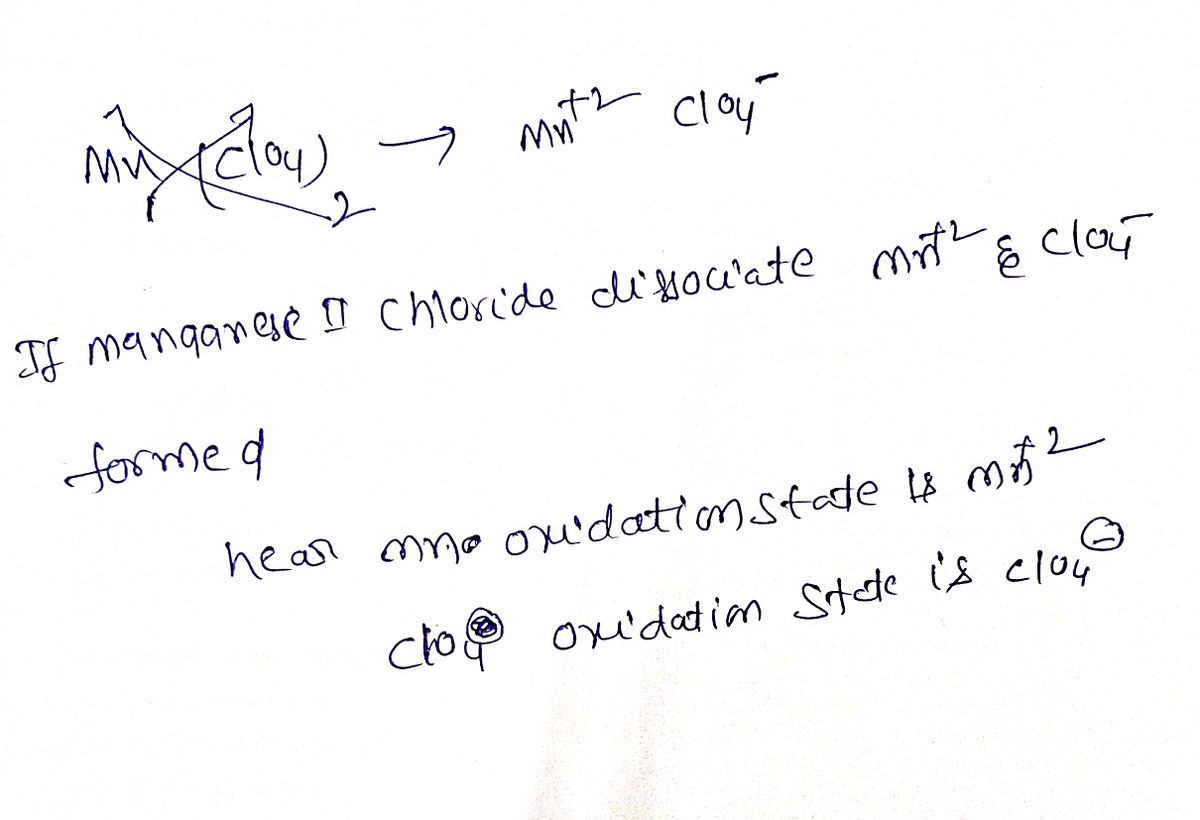 Mn (ClO4) 2 → Mn+2 ClO4-
If manganese II chloride dissociate Mn+2 & ClO4-
formed
hear mn oxidation state is mn+2
ClO4 oxidation state is ClO4-